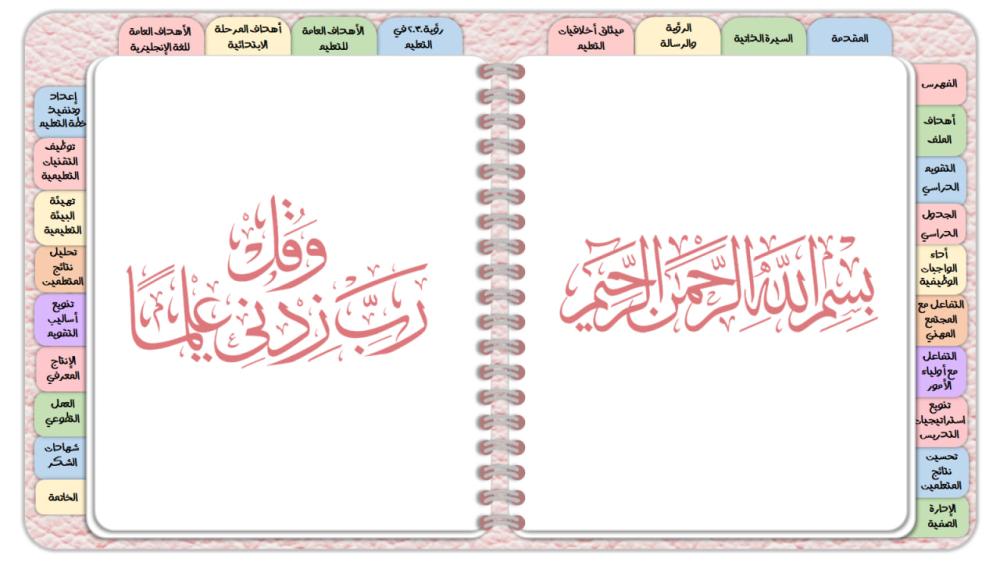 المقدمة
السيرة الذاتية
الرؤية
والرسالة
ميثاق أخلاقيات
التعليم
رؤية ٢٠٣٠ في
التعليم
الأهداف العامة
للتعليم
أهداف المرحلة
الابتدائية
الأهداف العامة
للغة الإنجليزية
الفهرس
أهداف
الملف
التقويم
الدراسي
الجدول
الدراسي
أداء
الواجبات
الوظيفية
التفاعل مع
المجتمع
المهني
التفاعل
مع أولياء
الأمور
تنويع
استراتيجيات
التدريس
تحسين
نتائج
المتعلمين
الإدارة
الصفية
بسم الله الرحمن الرحيم
وقل
رب زدني علما
إعداد
وتنفيذ
خطة التعليم
توظيف
التقنيات
التعليمية
تهيئة
البيئة
التعليمية
تحليل
نتائج
المتعلمين
تنويع
أساليب
التقويم
الإنتاج
المعرفي
العمل
التطوعي
شهادات
الشكر
الخاتمة